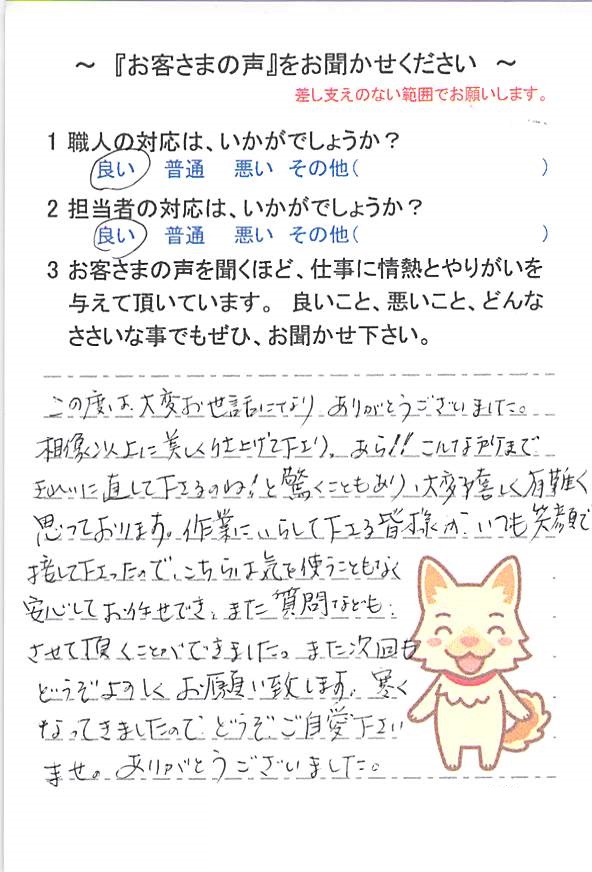 ～ 『お客さまの声』をお聞かせください ～
差し支えのない範囲でお願いします。
1 職人の対応は、いかがでしょうか？
良い 普通 悪い その他( )
2 担当者の対応は、いかがでしょうか？
良い 普通 悪い その他( )
3 お客さまの声を聞くほど、仕事に情熱とやりがいを
与えて頂いています。 良いこと、悪いこと、どんな
ささいな事でもぜひ、お聞かせ下さい。
この度は、大変お世話になり ありがとうございました。
想像以上に美しく仕上げて下さり、あら!! こんな所まで
きれいに直して下さるのね!と驚くこともあり、大変嬉しく有難く
思っております。作業にいらして下さる皆様が、いつも笑顔で
接して下さったので、こちらは気を使うこともなく
安心してお任せでき、また質問なども
させて頂くことができました。また次回も
どうぞよろしくお願い致します。寒く
なってきましたので、どうぞご自愛下さい
ませ。ありがとうございました。